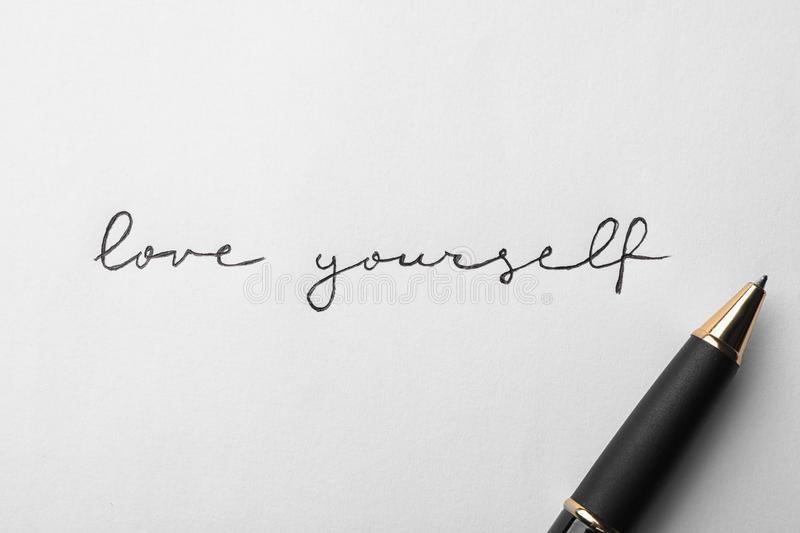 love yourself
dreamstime